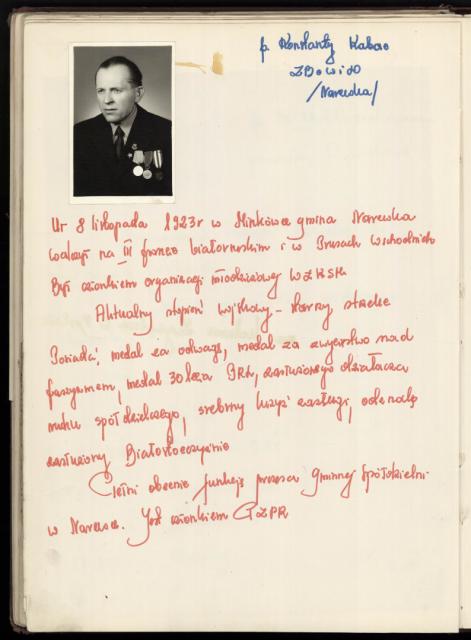 p Konstanty Kabac
ZBowiD
/Narewka/
Ur 8 listopada 1923r w Minkówce gmina Narewka
walczył na III froncie białoruskim i w Prusach Wschodnich
Był członkiem organizacji młodzieżowej WLKSM
Aktualny stopień wojskowy - starszy strzelec
Posiada, medal za odwagę, medal za zwycięstwo nad
faszyzmem, medal 30 lecia PRL, zasłużonego działacza
ruchu spółdzielczego, srebrny krzyż zasługi, odznakę
zasłużony Białostocczyźnie
Pełni obecnie funkcję prezesa gminnej Spółdzielni
w Narewce. Jest członkiem PZPR